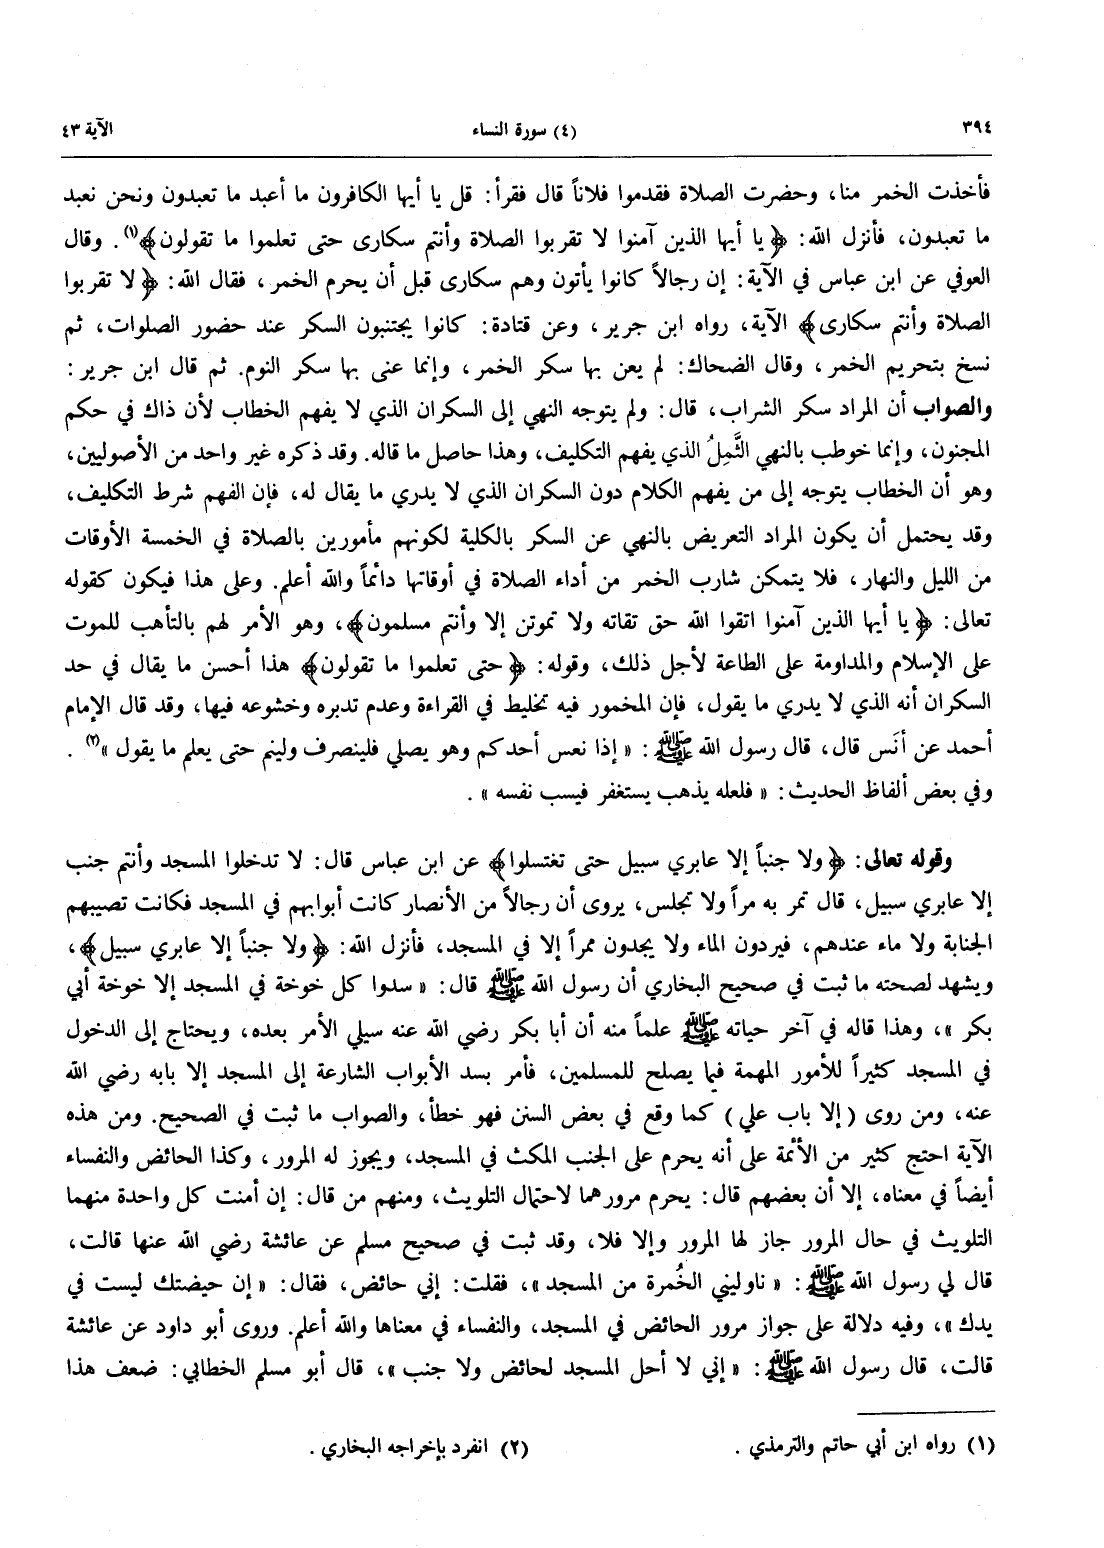 ٣٩٤ (٤) سورة النساء الآية ٤٣
فأخذت الخمر منا، وحضرت الصلاة فقدموا فلاناً قال فقرأ: قل يا أيها الكافرون ما أعبد ما تعبدون ونحن نعبد
ما تعبدون، فأنزل الله: ﴿يا أيها الذين آمنوا لا تقربوا الصلاة وأنتم سكارى حتى تعلموا ما تقولون﴾(١). وقال
العوفي عن ابن عباس في الآية: إن رجالاً كانوا يأتون وهم سكارى قبل أن يحرم الخمر، فقال الله: ﴿لا تقربوا
الصلاة وأنتم سكارى﴾ الآية، رواه ابن جرير، وعن قتادة: كانوا يجتنبون السكر عند حضور الصلوات، ثم
نسخ بتحريم الخمر، وقال الضحاك: لم يعن بها سكر الخمر، وإنما عنى بها سكر النوم. ثم قال ابن جرير:
والصواب أن المراد سكر الشراب، قال: ولم يتوجه النهي إلى السكران الذي لا يفهم الخطاب لأن ذاك في حكم
المجنون، وإنما خوطب بالنهي الثَّمِلُ الذي يفهم التكليف، وهذا حاصل ما قاله. وقد ذكره غير واحد من الأصوليين،
وهو أن الخطاب يتوجه إلى من يفهم الكلام دون السكران الذي لا يدري ما يقال له، فإن الفهم شرط التكليف،
وقد يحتمل أن يكون المراد التعريض بالنهي عن السكر بالكلية لكونهم مأمورين بالصلاة في الخمسة الأوقات
من الليل والنهار، فلا يتمكن شارب الخمر من أداء الصلاة في أوقاتها دائماً والله أعلم. وعلى هذا فيكون كقوله
تعالى: ﴿يا أيها الذين آمنوا اتقوا الله حق تقاته ولا تموتن إلا وأنتم مسلمون﴾، وهو الأمر لهم بالتأهب للموت
على الإسلام والمداومة على الطاعة لأجل ذلك، وقوله: ﴿حتى تعلموا ما تقولون﴾ هذا أحسن ما يقال في حد
السكران أنه الذي لا يدري ما يقول، فإن المخمور فيه تخليط في القراءة وعدم تدبره وخشوعه فيها، وقد قال الإمام
أحمد عن أنَس قال، قال رسول الله ﷺ: « إذا نعس أحدكم وهو يصلي فلينصرف ولينم حتى يعلم ما يقول »(٢).
وفي بعض ألفاظ الحديث: « فلعله يذهب يستغفر فيسب نفسه ».
وقوله تعالى: ﴿ولا جنباً إلا عابري سبيل حتى تغتسلوا﴾ عن ابن عباس قال: لا تدخلوا المسجد وأنتم جنب
إلا عابري سبيل، قال تمر به مراً ولا تجلس، يروى أن رجالاً من الأنصار كانت أبوابهم في المسجد فكانت تصيبهم
الجنابة ولا ماء عندهم، فيردون الماء ولا يجدون ممراً إلا في المسجد، فأنزل الله: ﴿ولا جنباً إلا عابري سبيل﴾،
ويشهد لصحته ما ثبت في صحيح البخاري أن رسول الله ﷺ قال: « سدوا كل خوخة في المسجد إلا خوخة أبي
بكر »، وهذا قاله في آخر حياته ﷺ علماً منه أن أبا بكر رضي الله عنه سيلي الأمر بعده، ويحتاج إلى الدخول
في المسجد كثيراً للأمور المهمة فيما يصلح للمسلمين، فأمر بسد الأبواب الشارعة إلى المسجد إلا بابه رضي الله
عنه، ومن روى (إلا باب علي) كما وقع في بعض السنن فهو خطأ، والصواب ما ثبت في الصحيح. ومن هذه
الآية احتج كثير من الأئمة على أنه يحرم على الجنب المكث في المسجد، ويجوز له المرور، وكذا الحائض والنفساء
أيضاً في معناه، إلا أن بعضهم قال: يحرم مرورهما لاحتمال التلويث، ومنهم من قال: إن أمنت كل واحدة منهما
التلويث في حال المرور جاز لها المرور وإلا فلا، وقد ثبت في صحيح مسلم عن عائشة رضي الله عنها قالت،
قال لي رسول الله ﷺ: « ناوليني الخُمرة من المسجد »، فقلت: إني حائض، فقال: « إن حيضتك ليست في
يدك »، وفيه دلالة على جواز مرور الحائض في المسجد، والنفساء في معناها والله أعلم. وروى أبو داود عن عائشة
قالت، قال رسول الله ﷺ: « إني لا أحل المسجد لحائض ولا جنب »، قال أبو مسلم الخطابي: ضعف هذا
(١) رواه ابن أبي حاتم والترمذي. (٢) انفرد بإخراجه البخاري.